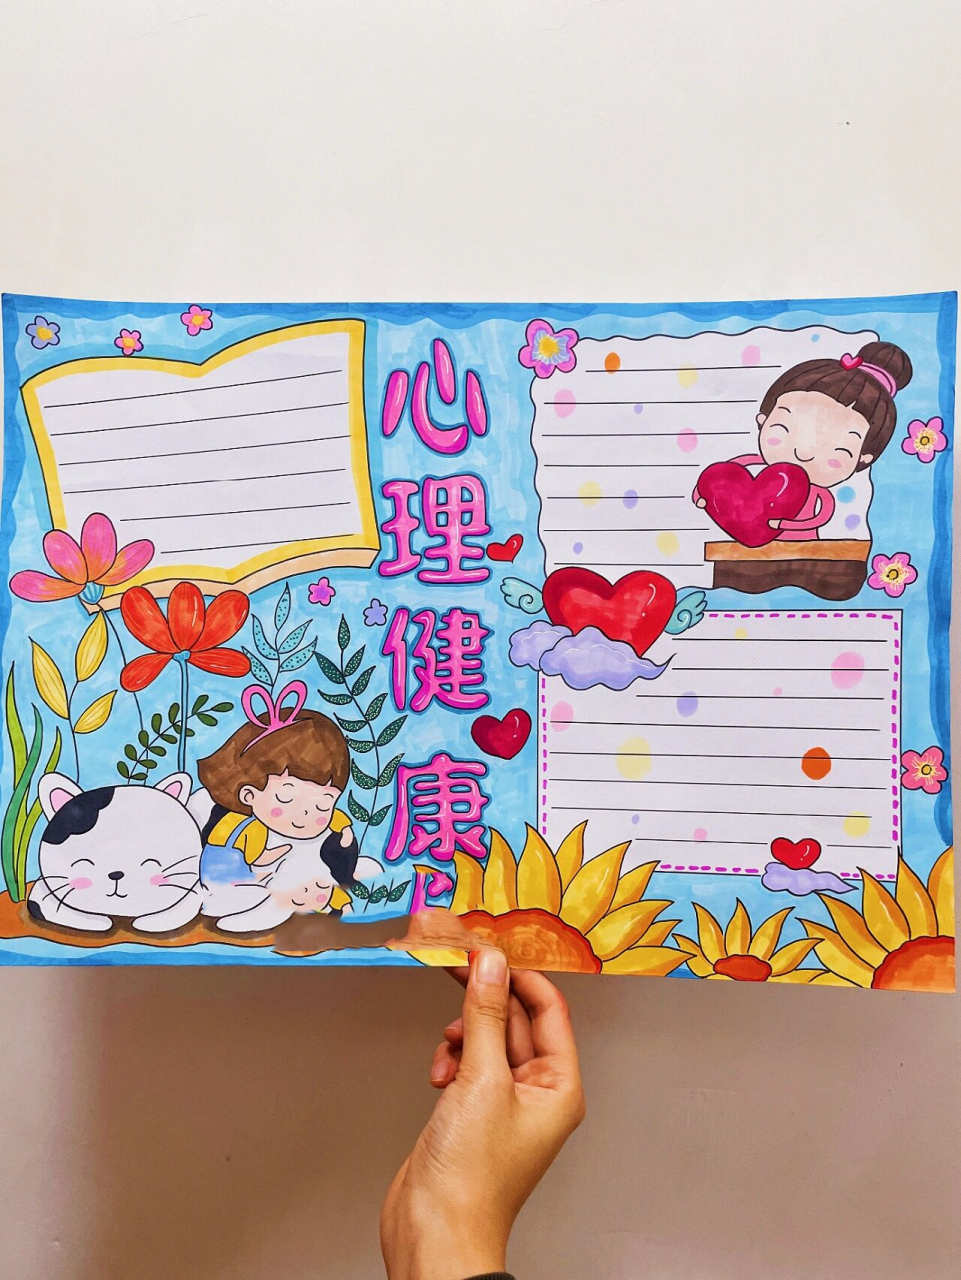 心
理
健
康